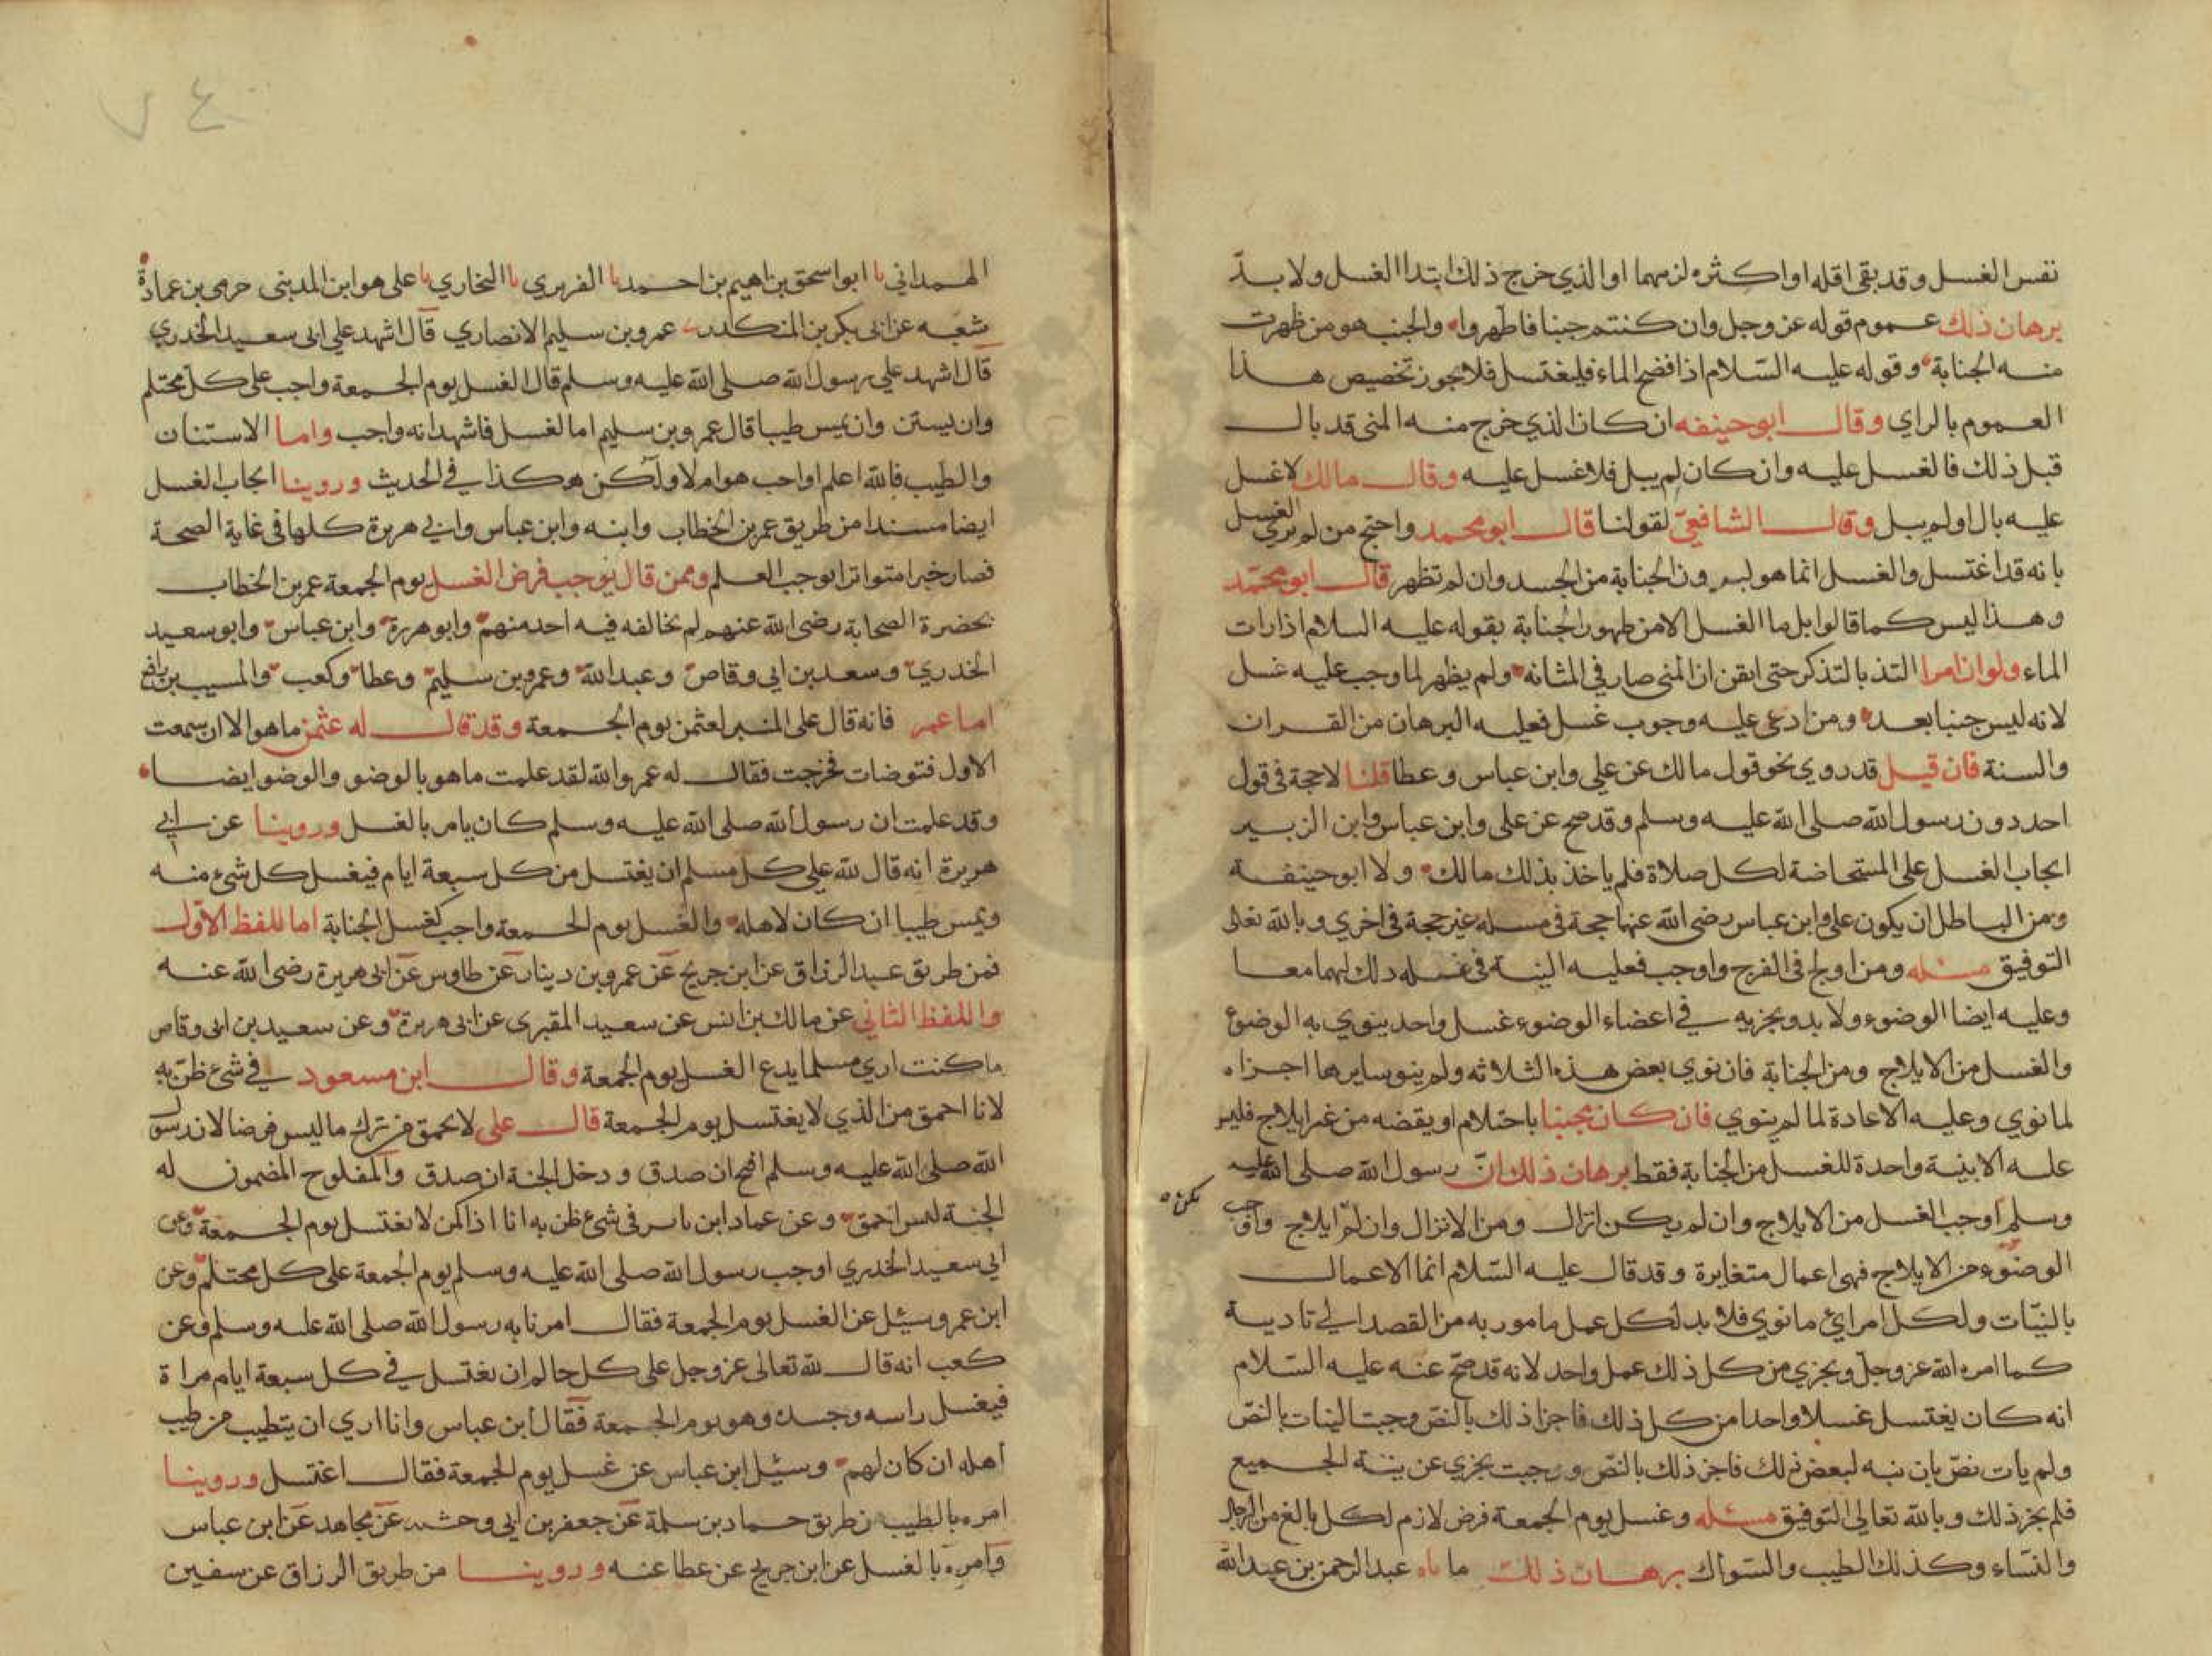 نفس الغسل وقد بقى اقله او اكثره لزمهما او الذي خرج ذلك ابتدا الغسل ولا بدّ
برهان ذلك عموم قوله عز وجل وان كنتم جنبا فاطهروا والجنب هو من ظهرت
منه الجنابة وقوله عليه السّلام اذا فضخ الماء فليغتسل فلا يجوز تخصيص هذا
العموم بالراي وقال ابو حنيفه ان كان الذي خرج منه المنى قد بال
قبل ذلك فالغسل عليه وان كان لم يبل فلا غسل عليه وقال مالك لا غسل
عليه بال او لم يبل وقال الشافعيّ لقولنا قال ابو محمد واحتج من لم يري الغسل
بانه قد اغتسل والغسل انما هو لبروز الجنابة من الجسد وان لم تظهر قال ابو محمّد
وهذا ليس كما قالوا بل ما الغسل الا من ظهور الجنابة بقوله عليه السلام اذا رات
الماء ولو ان امرا التذ بالتذكر حتى ايقن ان المنى صار في المثانه ولم يظهر لما وجب عليه غسل
لانه ليس جنبا بعد ومن ادعى عليه وجوب غسل فعليه البرهان من القران
والسنة فان قيل قد روي نحو قول مالك عن على وابن عباس وعطا قلنا لا حجة فى قول
احد دون رسول الله صلى الله عليه وسلم وقد صح عن على وابن عباس وابن الزبير
ايجاب الغسل على المستحاضة لكل صلاة فلم ياخذ بذلك مالك ولا ابو حنيفة
ومن الباطل ان يكون على وابن عباس رضى الله عنهما حجة فى مسله غير حجة فى اخري وبالله تعالى
التوفيق مسئله ومن اولج فى الفرج واوجب فعليه النية فى غسله ذلك لهما معا
وعليه ايضا الوضوء ولا بد ويجزيه في اعضاء الوضوء غسل واحد ينوي به الوضوء
والغسل من الايلاج ومن الجنابة فان نوي بعض هذه الثلاثه ولم ينو سايرها اجزاه
لما نوي وعليه الاعادة لما لم ينوي فان كان مجنبا باحتلام او يقضه من غير ايلاج فليس
عليه الا بنية واحدة للغسل من الجنابة فقط برهان ذلك انّ رسول الله صلى الله عليه
وسلم اوجب الغسل من الايلاج وان لم يكن انزال ومن الانزال وان لم ايلاج واوجب
يكن
الوضوء من الايلاج فهى اعمال متغايرة وقد قال عليه السّلام انما الاعمال
بالنيّات ولكل امرايٍ ما نوي فلا بد لكل عمل مامور به من القصد الي تادية
كما امره الله عز وجلّ ويجزي من كل ذلك عمل واحد لانه قد صحّ عنه عليه السّلام
انه كان يغتسل غسلا واحدا من كل ذلك فاجزا ذلك بالنصّ وجبت النيات بالنصّ
ولم يات نصّ بان نيه لبعض ذلك فاجز ذلك بالنصّ ووجبت يجزي عن ينة الجميع
فلم يجز ذلك وبالله تعالى التوفيق مسئله وغسل يوم الجمعة فرض لازم لكل بالغ من الرجال
والنسّاء وكذلك الطيب والسّواك برهان ذلك ما ناه عبد الرحمن بن عبد الله
الهمداني نا ابو اسحق بن اهيم بن احمد نا الفربري نا البخاري نا على هو ابن المدينى حرمى بن عمارة
شعبه عن ابى بكر بن المنكدر عمرو بن سليم الانصاري قال اشهد على ابى سعيد الخدري
قال اشهد علي رسول الله صلى الله عليه وسلم قال الغسل يوم الجمعة واجب على كل محتلم
وان يستن وان يمس طيبا قال عمرو بن سليم اما لغسل فاشهد انه واجب واما الاستنان
والطيب فالله اعلم اواجب هو ام لا ولكن هكذا في الحديث وروينا ايجاب الغسل
ايضا مسندا من طريق عمر بن الخطاب وابنه وابن عباس وابي هريرة كلها فى غاية الصحة
فصار خبرا متواترا يوجب العلم وممن قال يوجب فرض الغسل يوم الجمعة عمر بن الخطاب
بحضرة الصحابة رضى الله عنهم لم يخالفه فيه احد منهم وابو هريرة وابن عباس وابو سعيد
الخدري وسعد بن ابي وقاص وعبد الله وعمرو بن سليم وعطا وكعب والمسيب بن رافع
اما عمر فانه قال على المنبر لعثمن يوم الجمعة وقد قال له عثمن ما هو الا ان سمعت
الاول فتوضات فخرجت فقال له عمر والله لقد علمت ما هو بالوضو والوضو ايضا
وقد علمت ان رسول الله صلى الله عليه وسلم كان يامر بالغسل وروينا عن ابي
هريرة انه قال لله علي كل مسلم ان يغتسل من كل سبعة ايام فيغسل كل شىء منه
ويمس طيبا ان كان لاهله والغسل يوم الجمعة واجب كغسل الجنابة اما للفظ الاوّل
فمن طريق عبد الرزاق عن ابن جريج عن عمرو بن دينار عن طاوس عن ابى هريرة رضى الله عنه
واللفظ الثاني عن مالك بن انس عن سعيد المقبرى عن ابى هريرة وعن سعيد بن ابى وقاص
ما كنت اري مسلما يدع الغسل يوم الجمعة وقال ابن مسعود في شىء ظنّ به
لانا احمق من الذي لا يغتسل يوم الجمعة قال على لا يحمق من ترك ما ليس فرضا لان رسول
الله صلى الله عليه وسلم افلح ان صدق ودخل الجنة ان صدق والمفلوح المضمون له
الجنة ليس احمق وعن عماد ابن ياسر فى شىء ظن به انا اذا كمن لا يغتسل يوم الجمعة وعن
ابي سعيد الخدري اوجب رسول الله صلى الله عليه وسلم يوم الجمعة على كل محتلم وعن
ابن عمر وسئل عن الغسل يوم الجمعة فقال امرنا به رسول الله صلى الله عليه وسلم وعن
كعب انه قال لله تعالى عز وجل على كل حالم ان يغتسل في كل سبعة ايام مراة
فيغسل راسه وجسده وهو يوم الجمعة فقال ابن عباس وانا اري ان يتطيب من طيب
اهله ان كان لهم وسئل ابن عباس عن غسل يوم الجمعة فقال اغتسل وروينا
امره بالطيب ن طريق حماد بن سلمة عن جعفر بن ابي وحشيه عن مجاهد عن ابن عباس
وامره بالغسل عن ابن جريج عن عطا عنه وروينا من طريق الرزاق عن سفين